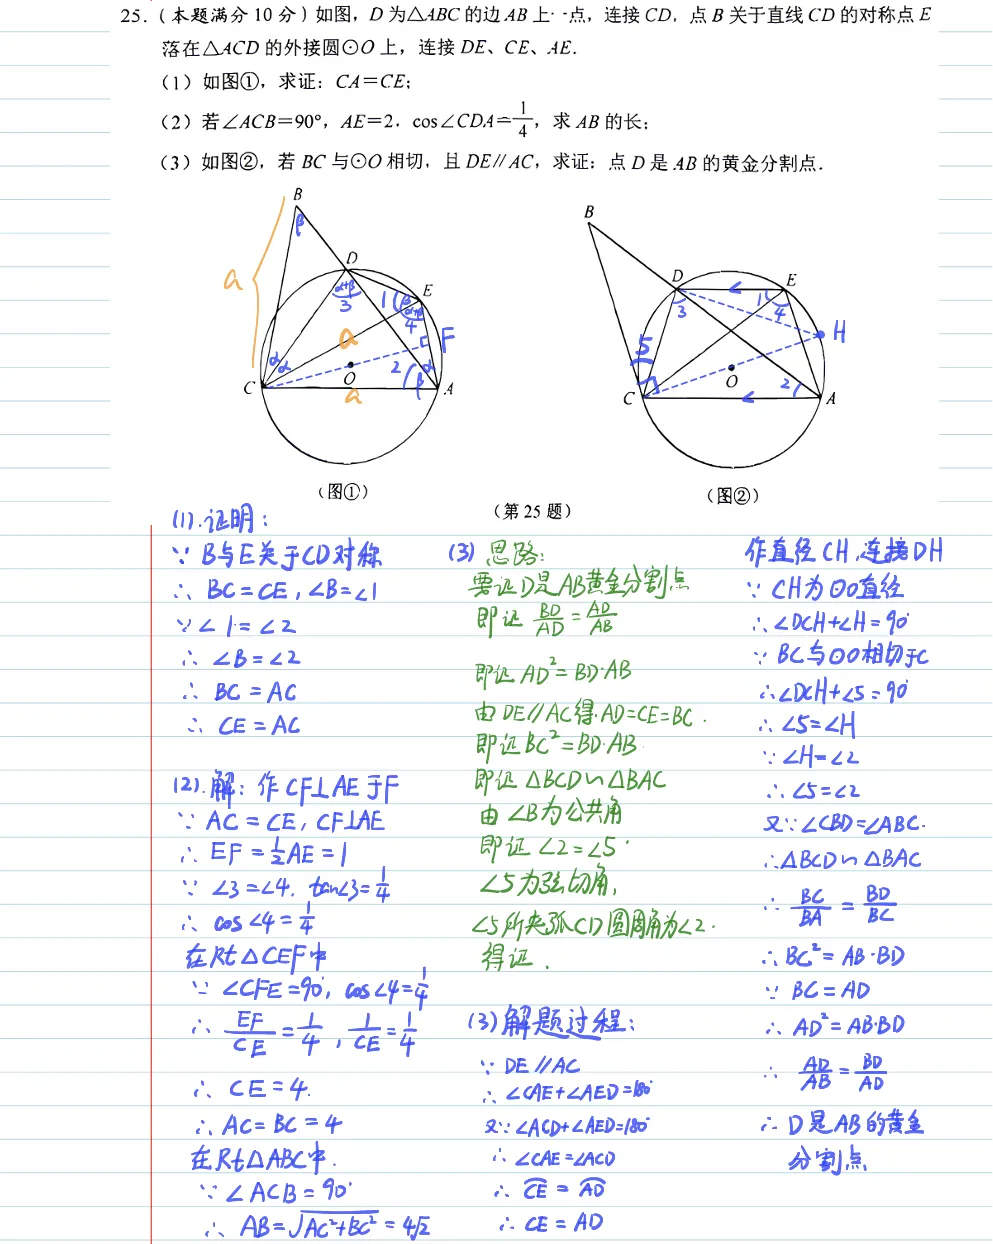 25.(本题满分10分)如图,D为△ABC的边AB上一点,连接CD,点B关于直线CD的对称点E
落在△ACD的外接圆⊙O上,连接DE、CE、AE.
(1)如图①,求证:CA=CE;
(2)若∠ACB=90°,AE=2,cos∠CDA=1/4,求AB的长;
(3)如图②,若BC与⊙O相切,且DE∥AC,求证:点D是AB的黄金分割点.
B
β
D
α+β
3
1
β
E
α+β
4
F
a
a
α
α
2
α
β
C
O
A
a
(图①)
B
D
E
1
4
3
H
5
O
2
C
A
(图②)
(第25题)
(1).证明:
∵ B与E关于CD对称
∴ BC=CE,∠B=∠1
∵∠1=∠2
∴ ∠B=∠2
∴ BC=AC
∴ CE=AC
(2).解:作CF⊥AE于F
∵ AC=CE,CF⊥AE
∴ EF=1/2AE=1
∵ ∠3=∠4. tan∠3=1/4
∴ cos∠4=1/4
在Rt△CEF中
∵ ∠CFE=90°,cos∠4=1/4
∴ EF/CE=1/4,1/CE=1/4
∴ CE=4.
∴ AC=BC=4
在Rt△ABC中.
∵ ∠ACB=90°
∴ AB=√AC²+BC²=4√2
(3)思路:
要证D是AB黄金分割点
即证 BD/AD=AD/AB
即证AD²=BD·AB
由DE∥AC得.AD=CE=BC.
即证BC²=BD·AB
即证△BCD∽△BAC
由∠B为公共角
即证∠2=∠5.
∠5为弦切角,
∠5所夹弧CD圆周角为∠2.
得证.
(3)解题过程:
∵ DE∥AC
∴ ∠CAE+∠AED=180°
又∵∠ACD+∠AED=180°
∴ ∠CAE=∠ACD
∴ CE=AD
∴ CE=AD
作直径CH,连接DH
∵ CH为⊙O直径
∴∠DCH+∠H=90°
∵ BC与⊙O相切于C
∴∠DCH+∠5=90°
∴ ∠5=∠H
∵ ∠H=∠2
∴ ∠5=∠2
又∵∠CBD=∠ABC.
∴△BCD∽△BAC
∴ BC/BA=BD/BC
∴BC²=AB·BD
∵ BC=AD
∴ AD²=AB·BD
∴ AD/AB=BD/AD
∴ D是AB的黄金
分割点